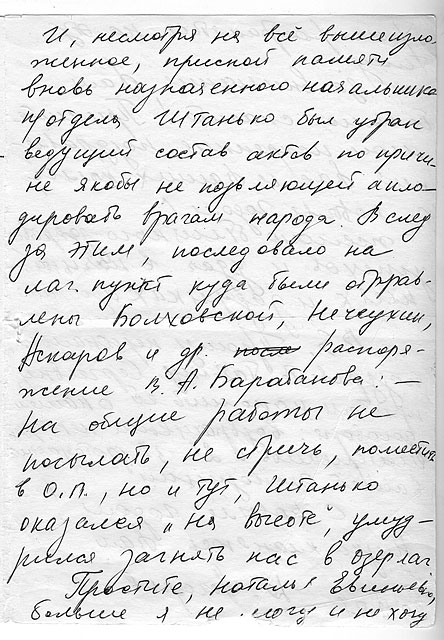 И, несмотря на всё вышеизло-
женное, присной памяти
вновь назначенного начальника
п/отдела Штанько был убран
ведущий состав актов по причи-
не якобы не позвляющей апло-
дировать врагам народа. Вслед
за этим, последовало на
лаг. пункт куда были отправ-
лены Болховской, Нечкухин,
и др. после распоря-
жение В. А. Барабанова: —
На общие работы не
посылать, не стричь, поместить
в О.П., но и тут, Штанько
оказался „на высоте", умуд-
рился загнать нас в озерлаг
Простите, Наталья
больше я не могу и не хочу